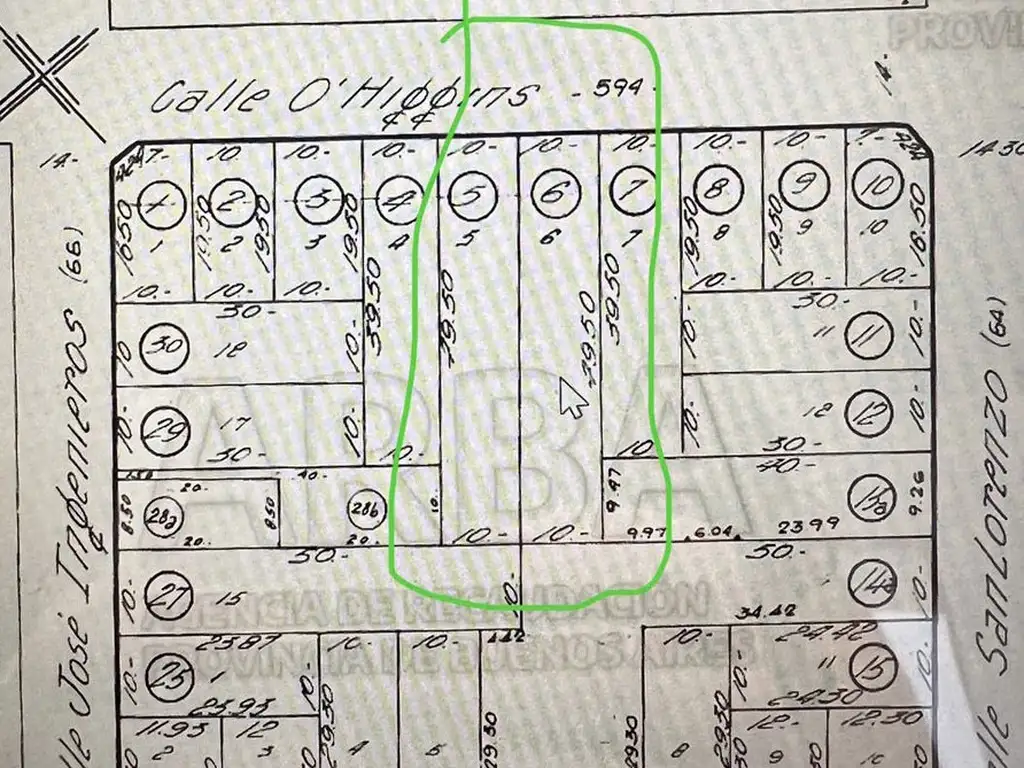 PROVI
Calle O'Higgins - 594 -
14.-
14.-
14.30
4.24 7.- 10.- 10.- 10.- 10.- 10.- 10.- 10.- 10.- 7.- 4.24
1 2 3 4 5 6 7 8 9 10
1 2 3 4 5 6 7 8 9 10
16.50 19.50 19.50 19.50 19.50 19.50 16.50
10.- 10.- 10.- 10.- 10.- 10.-
39.50 39.50
30.- 30.-
30 18 10.- 10.- 11 11 10.-
10
29 17 10.- 10.- 12 12 10.-
10.-
30.- 10.- 10 30.-
1.50 40.- 40.-
20.- 9.97
8.50 28a 8.50 28b 10. 9.26
20.- 20.- 10.- 10.- 9.97 6.04 23.99
50.- 50.-
10.- 27 15 10.- 14a 10.-
34.42
ARBA
AGENCIA DE RECAUDACIÓN
PROVINCIA DE BUENOS AIRES
25.87 10.- 10.- 4.42 10.- 24.42
10.- 25 1 10.- 10.- 11 15 10.-
25.93 24.30
11.93 12 12.- 12.30
29.30 29.30 29.30 29.30
2 3 4 5 8 9 10
lle José Ingenieros (66)
alle San Lorenzo (64)